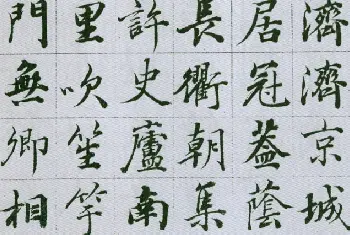 濟濟京城
居冠蓋蔭
長衢朝集
許史廬南
里吹笙竽
門無卿相